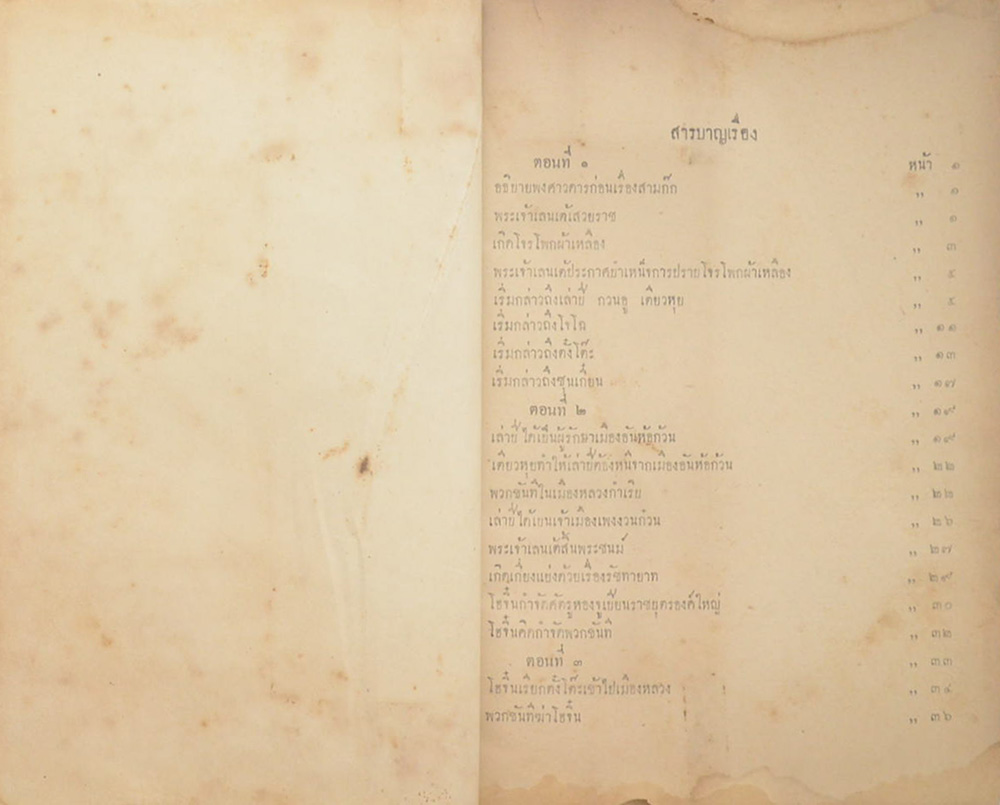 สารบาญเรื่อง
ตอนที่ ๑ หน้า ๑
อธิบายพงศาวดารก่อนเรื่องสามก๊ก ,, ๑
พระเจ้าเลนเต้เสวยราช ,, ๑
เกิดโจรโพกผ้าเหลือง ,, ๓
พระเจ้าเลนเต้ประกาศบำเหน็จการปราบโจรโพกผ้าเหลือง ,, ๕
เริ่มกล่าวถึงเล่าปี่ กวนอู เตียวหุย ,, ๕
เริ่มกล่าวถึงโจโฉ ,, ๑๑
เริ่มกล่าวถึงตั้งโต๊ะ ,, ๑๓
เริ่มกล่าวถึงซุนเกี๋ยน ,, ๑๗
ตอนที่ ๒ ,, ๑๙
เล่าปี่ได้เป็นผู้รักษาเมืองอันห้อก้วน ,, ๑๙
เตียวหุยทำให้เล่าปี่ต้องหนีจากเมืองอันห้อก้วน ,, ๒๒
พวกขันทีในเมืองหลวงกำเริบ ,, ๒๒
เล่าปี่ได้เปนเจ้าเมืองเพงงวนก๋วน ,, ๒๖
พระเจ้าเลนเต้สิ้นพระชนม์ ,, ๒๗
เกิดเกี่ยงแย่งด้วยเรื่องรัชทายาท ,, ๒๙
โฮจิ๋นกำจัดศัตรูหองจูเปียนราชบุตรองค์ใหญ่ ,, ๓๐
โฮจิ๋นคิดกำจัดพวกขันที ,, ๓๒
ตอนที่ ๓ ,, ๓๓
โฮจิ๋นเรียกตั้งโต๊ะเข้าไปเมืองหลวง ,, ๓๔
พวกขันทีฆ่าโฮจิ๋น ,, ๓๖